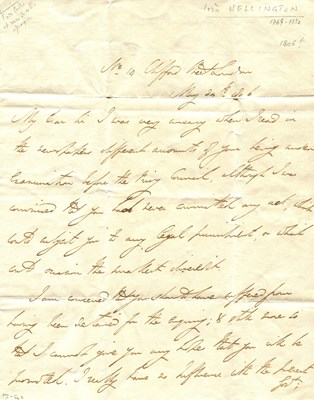 WELLINGTON
1769-1852
No 10 Clifford Street London
May 20th 1806
My Dear Sir I was very uneasy when I read in
the newspapers different accounts of your being under
Examination before the Privy Council, although I was
convinced that you had never committed any act, which
could subject you to any legal punishment, or which
could occasion the smallest discredit.
I am concerned that you should have suffered from
having been detained for the inquiry; & still more so
that I cannot give you any hopes that you will be
promoted. I really have no influence with the present
Govt.